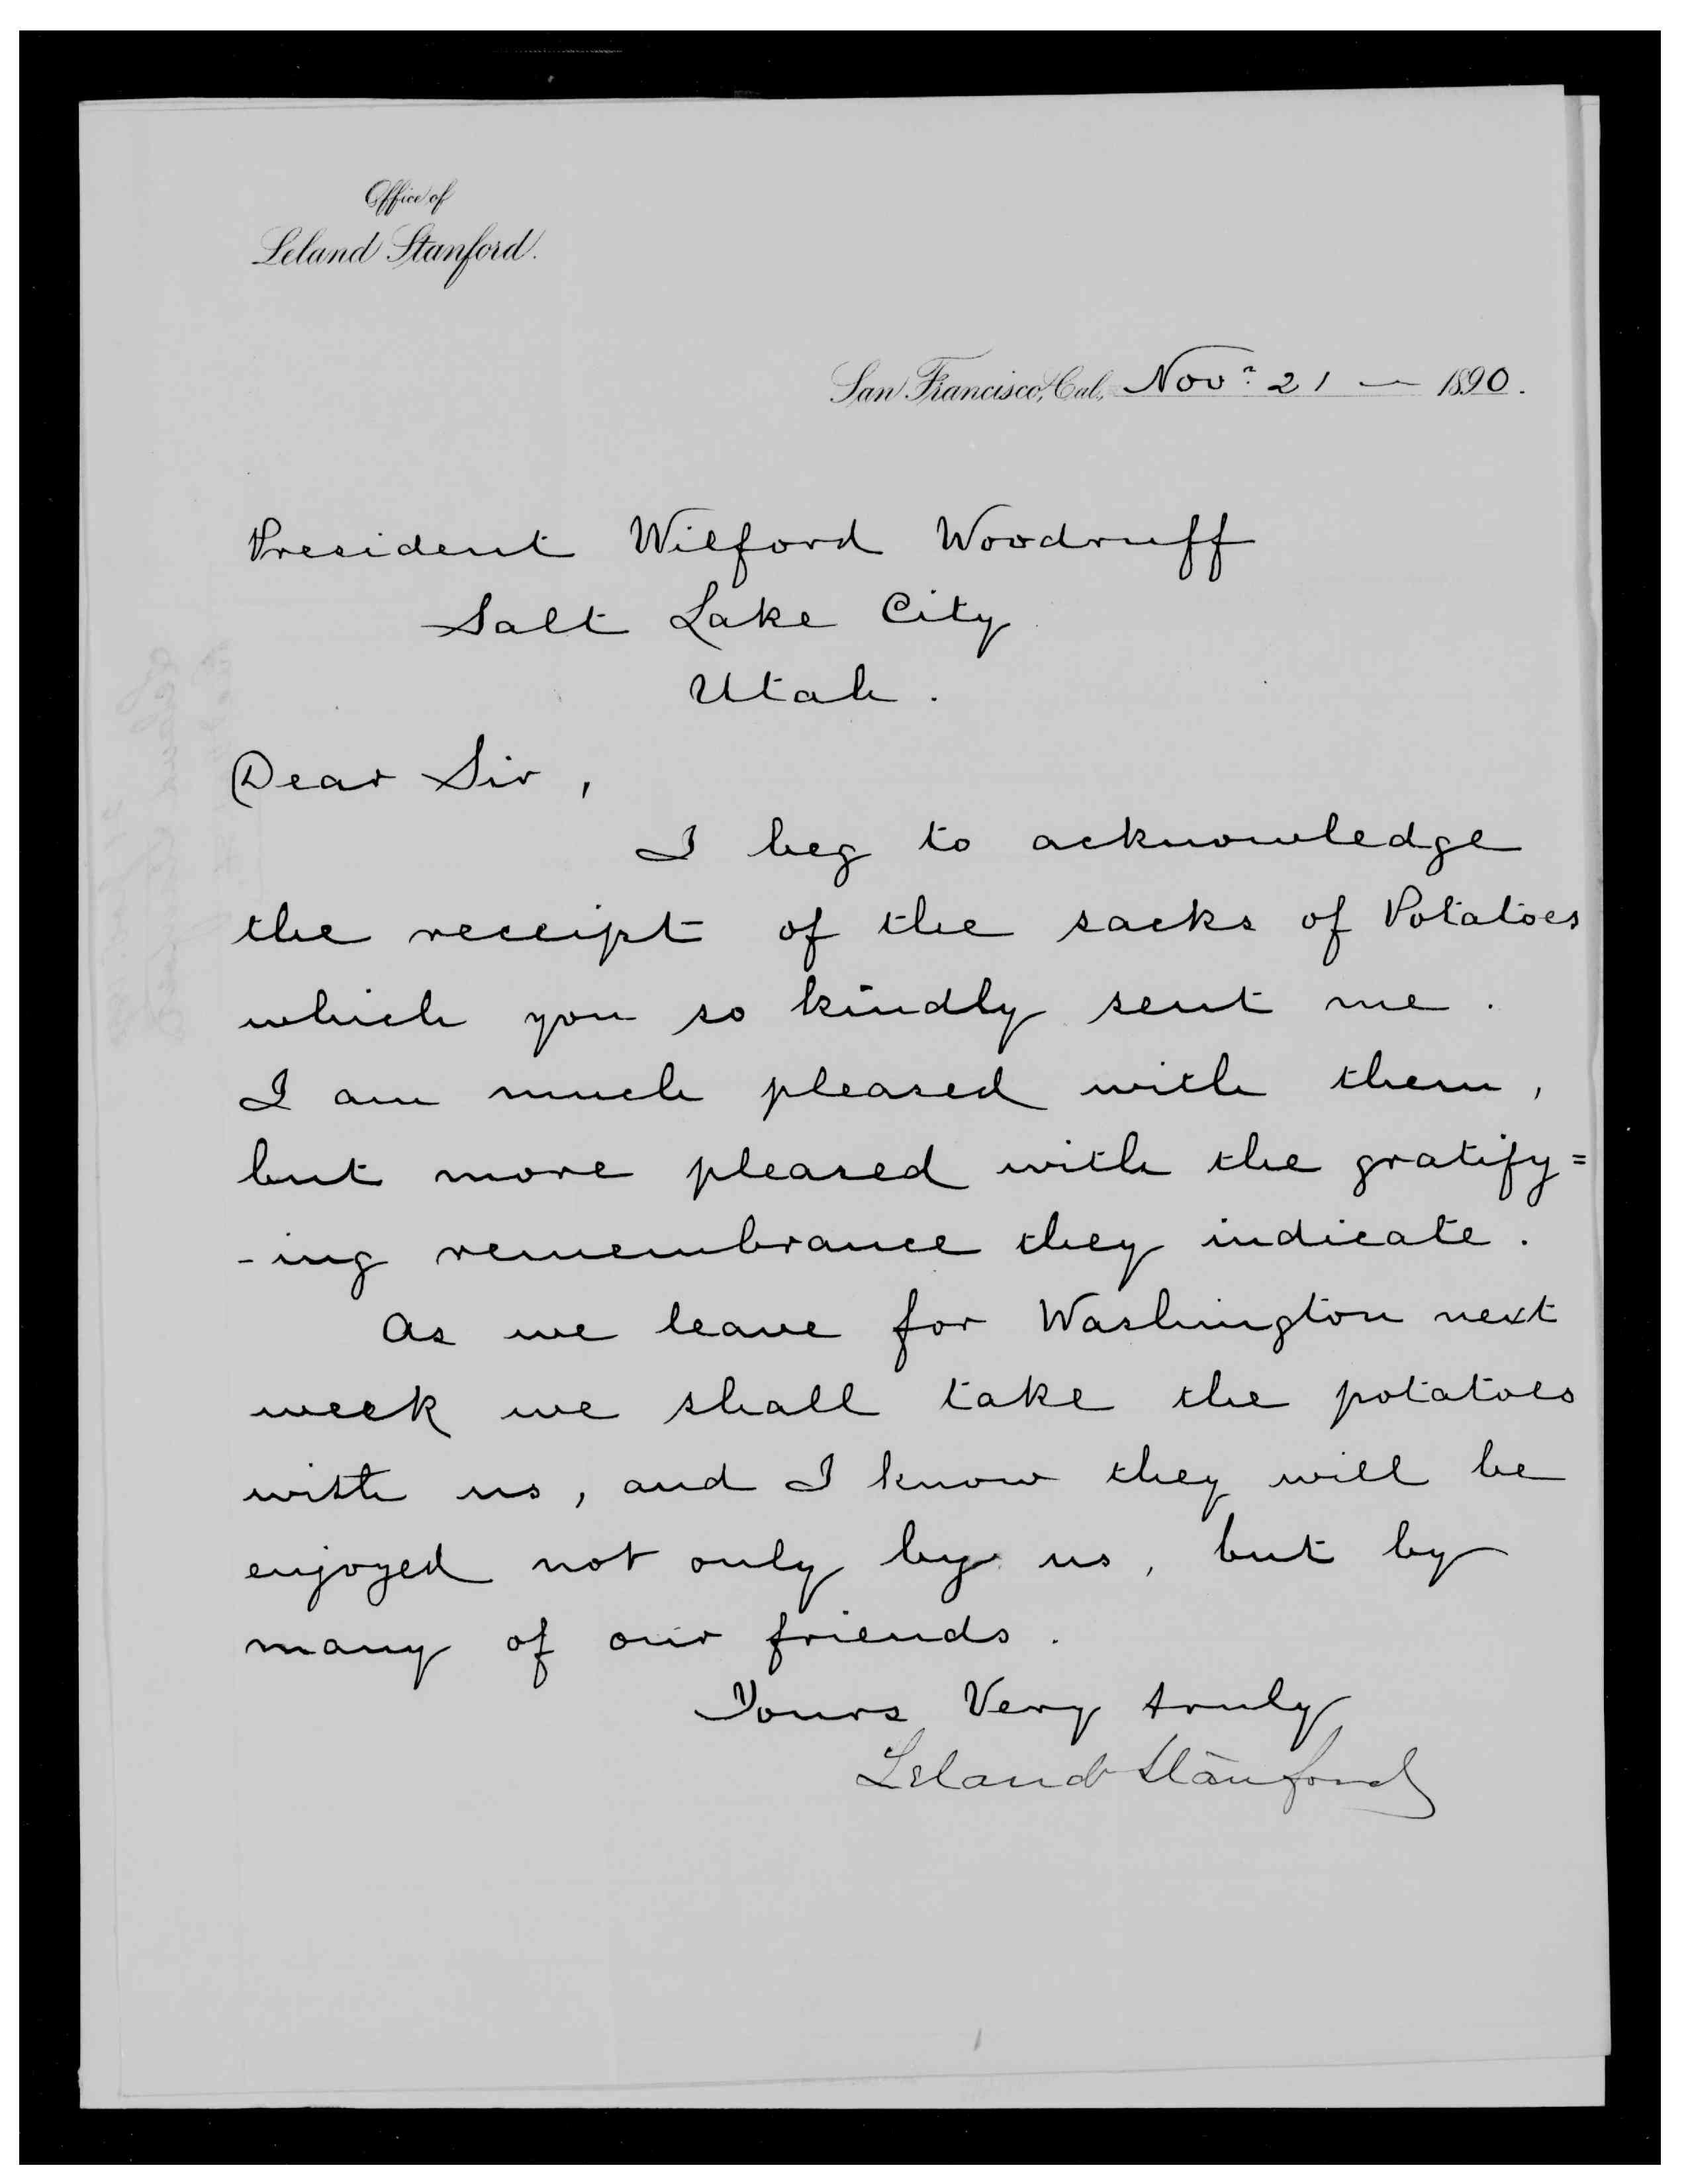 Office of
Leland Stanford.
San Francisco, Cal., Nov.r 21 — 1890.
President Wilford Woodruff
Salt Lake City
Utah.
Dear Sir,
I beg to acknowledge
the receipt of the sacks of Potatoes
which you so kindly sent me.
I am much pleased with them,
but more pleased with the gratify=
-ing remembrance they indicate.
As we leave for Washington next
week we shall take the potatoes
with us, and I know they will be
enjoyed not only by us, but by
many of our friends.
Yours Very truly
Leland Stanford